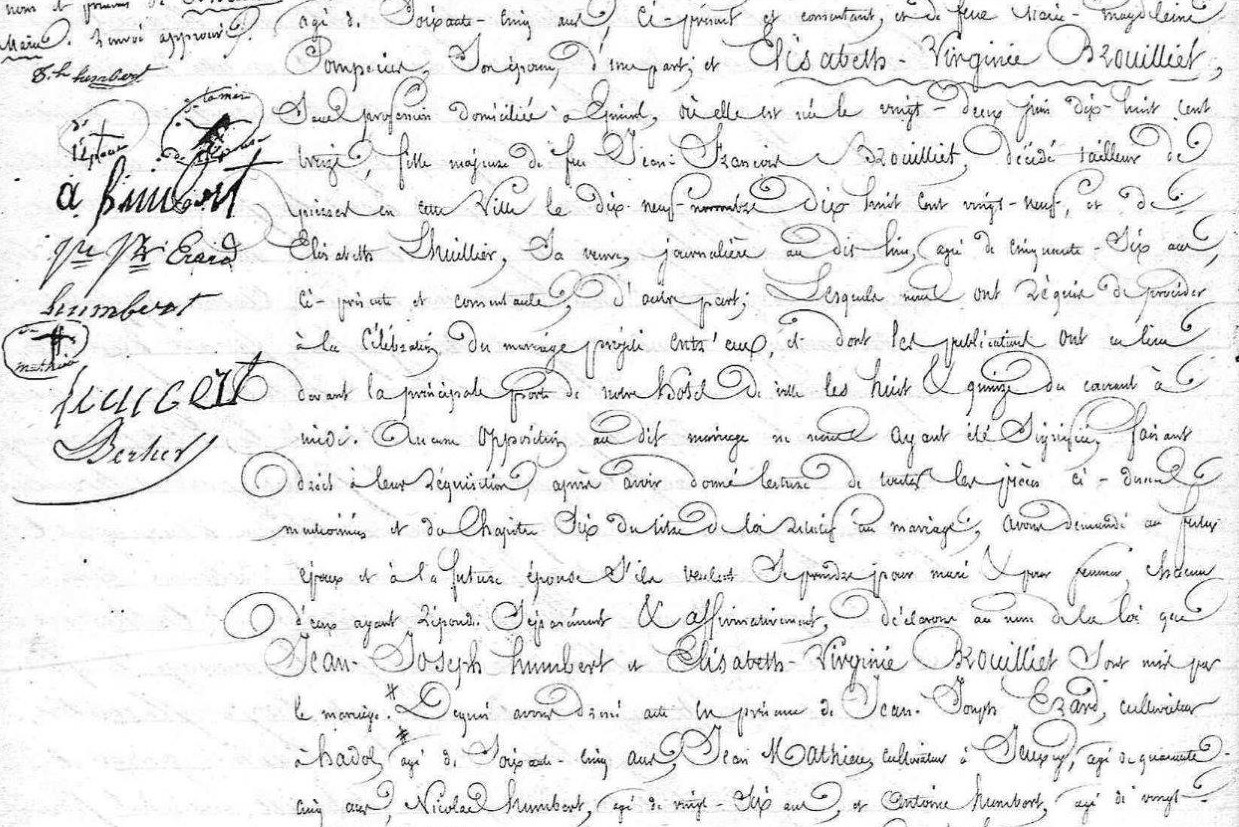 nom et prénoms de
Maire. Renvoi approuvé.
J. h humbert
de l'époux
de la mère
de l'épouse
a himbert
Jn Jh Erard
humbert
mathieu
Berher
agé de Soixante-Cinq ans, Ci-présent et consentant, et de feue Marie-magdeleine
Pompeier, Son épouse, d'une part; et Elisabeth-Virginie Brouilliét,
Sans profession domiciliée à Epinal, où elle est née le vingt-deux juin dix-huit cent
treize, fille majeure de feu Jean-François Brouilliet, décédé tailleur de
pierres en cette Ville le dix-neuf novembre Dix huit cent vingt-neuf, et de
Elisabeth Lhuillier, Sa veuve, journalière au dit lieu, agée de cinquante-Six ans,
Ci-présente et consentante, D'autre part; Lesquels nous ont Réquis de procéder
à la Célébration du mariage projeté entr'eux, et dont les publications ont eu lieu
devant la principale porte de notre hotel De ville les huit & quinze du courant à
midi. Aucune Opposition au dit mariage ne nous ayant été Signifiée, faisant
droit à leur Réquisition, après avoir donné lecture de toutes les pièces ci-dessus
mentionnées et du Chapitre Six du titre de la loi relatif au mariage, avons demandé au futur
époux et à la future épouse S'ils veulent Se prendre pour mari & pour femme, chacun
d'eux ayant Répondu Séparément & affirmativement, déclarons au nom de la loi que
Jean-Joseph humbert et Elisabeth-Virginie Brouilliet Sont unis par
le mariage. # Dequoi avons dressé acte en présence de Jean-Joseph Erard, cultivateur
à hadol, # agé de Soixante-Cinq ans, Jean Mathieu, cultivateur à Jeuxey, agé de quarante-
cinq ans, Nicolas humbert, agé de vingt-Six ans, et Antoine humbert, agé de vingt-